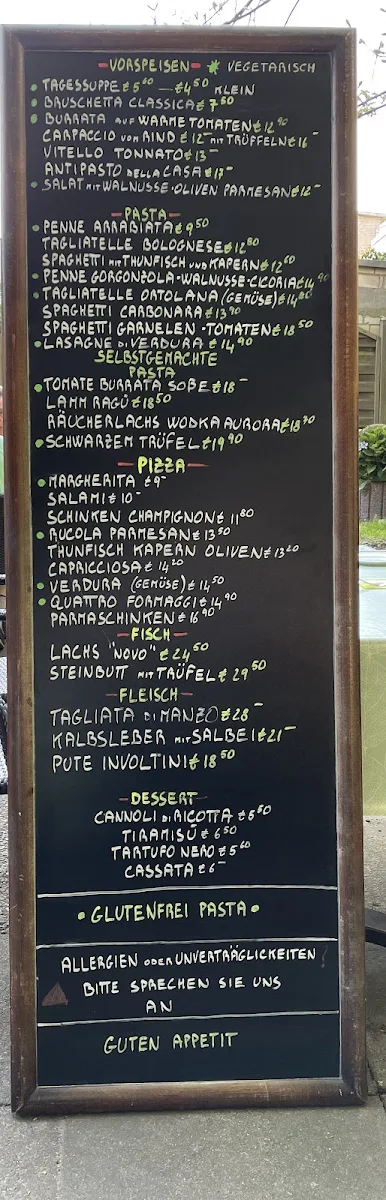 VORSPEISEN * VEGETARISCH
• TAGESSUPPE € 5 60 — €4 50 KLEIN
• BRUSCHETTA CLASSICA € 7 50
• BURRATA AUF WARME TOMATEN € 12 90
CARPACCIO VOM RIND € 12 - MIT TRÜFFELN € 16 -
VITELLO TONNATO € 13 -
ANTIPASTO DELLA CASA € 17 -
• SALAT MIT WALNUSSE-OLIVEN PARMESAN € 12 -
PASTA
• PENNE ARRABIATA € 9 50
TAGLIATELLE BOLOGNESE € 12 80
SPAGHETTI MIT THUNFISCH UND KAPERN € 12 60
• PENNE GORGONZOLA-WALNUSSE-CICORIA € 14 90
• TAGLIATELLE ORTOLANA (GEMÜSE) € 14
SPAGHETTI CARBONARA € 13 90
SPAGHETTI GARNELEN-TOMATEN € 18 50
• LASAGNE DI VERDURA € 14 90
SELBSTGEMACHTE
PASTA
• TOMATE BURRATA SOßE € 18 -
LAMM RAGÜ € 18 50
RÄUCHERLACHS WODKA AURORA € 18
• SCHWARZEM TRÜFEL € 19 90
PIZZA
• MARGHERITA € 9 -
SALAMI € 10 -
SCHINKEN CHAMPIGNON € 11 80
• RUCOLA PARMESAN € 13 50
THUNFISCH KAPERN OLIVEN € 13 20
CAPRICCIOSA € 14 20
• VERDURA (GEMÜSE) € 14,50
• QUATTRO FORMAGGI € 14 90
PARMASCHINKEN € 16 90
FISCH
LACHS "NOVO" € 24 50
STEINBUTT MIT TRÜFEL € 29 50
FLEISCH
TAGLIATA DI MANZO € 28 -
KALBSLEBER MIT SALBEI € 21 -
PUTE INVOLTINI € 18 50
DESSERT
CANNOLI DI RICOTTA € 6 50
TIRAMISÙ € 6 50
TARTUFO NERO € 5 60
CASSATA € 6 -
• GLUTENFREI PASTA •
ALLERGIEN ODER UNVERTRÄGLICKEITEN !
BITTE SPRECHEN SIE UNS
AN
GUTEN APPETIT